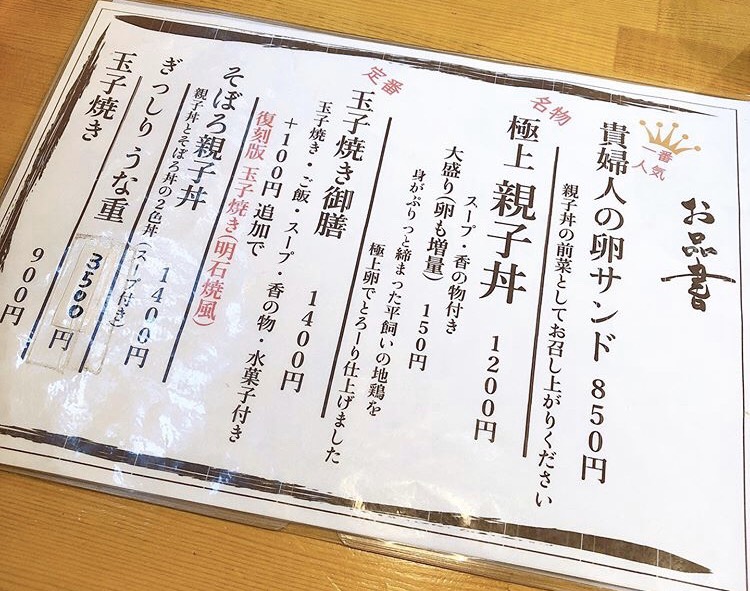 お品書
一番
人気
貴婦人の卵サンド 850円
親子丼の前菜としてお召し上がりください
名物
極上 親子丼 1200円
スープ・香の物付き
大盛り(卵も増量) 150円
身がぷりっと締まった平飼いの地鶏を
極上卵でとろーり仕上げました
定番
玉子焼き御膳 1400円
玉子焼き・ご飯・スープ・香の物・水菓子付き
+100円 追加で
復刻版 玉子焼き(明石焼風)
そぼろ親子丼 1400円
親子丼とそぼろ丼の2色丼(スープ付き)
ぎっしり うな重 3500円
玉子焼き 900円